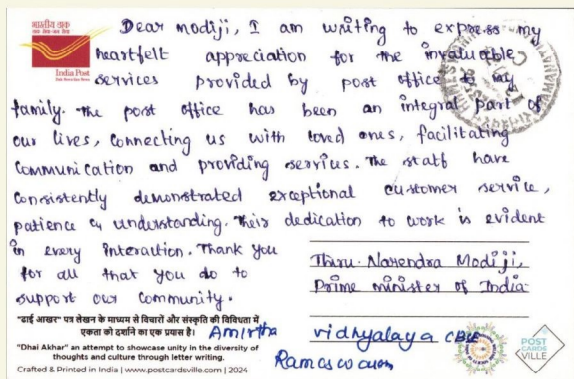 भारतीय डाक
India Post
Dear modiji, I am writing to express my
heartfelt appreciation for the invaluable
services provided by post office to my
family. The post office has been an integral part of
our lives, connecting us with loved ones, facilitating
communication and providing servius. The staff have
consistently demonstrated exceptional customer service,
patience & understanding. Their dedication to work is evident
in every interaction. Thank you
for all that you do to
support our community.
Thiru. Narendra Modiji,
Prime minister of India
"ढाई आखर" पत्र लेखन के माध्यम से विचारों और संस्कृति की विविधता में
एकता को दर्शाने का एक प्रयास है।
Amirtha vidhyalaya CBSE
"Dhai Akhar" an attempt to showcase unity in the diversity of
thoughts and culture through letter writing.
Crafted & Printed in India | www.postcardsville.com | 2024
POST
CARDS
VILLE